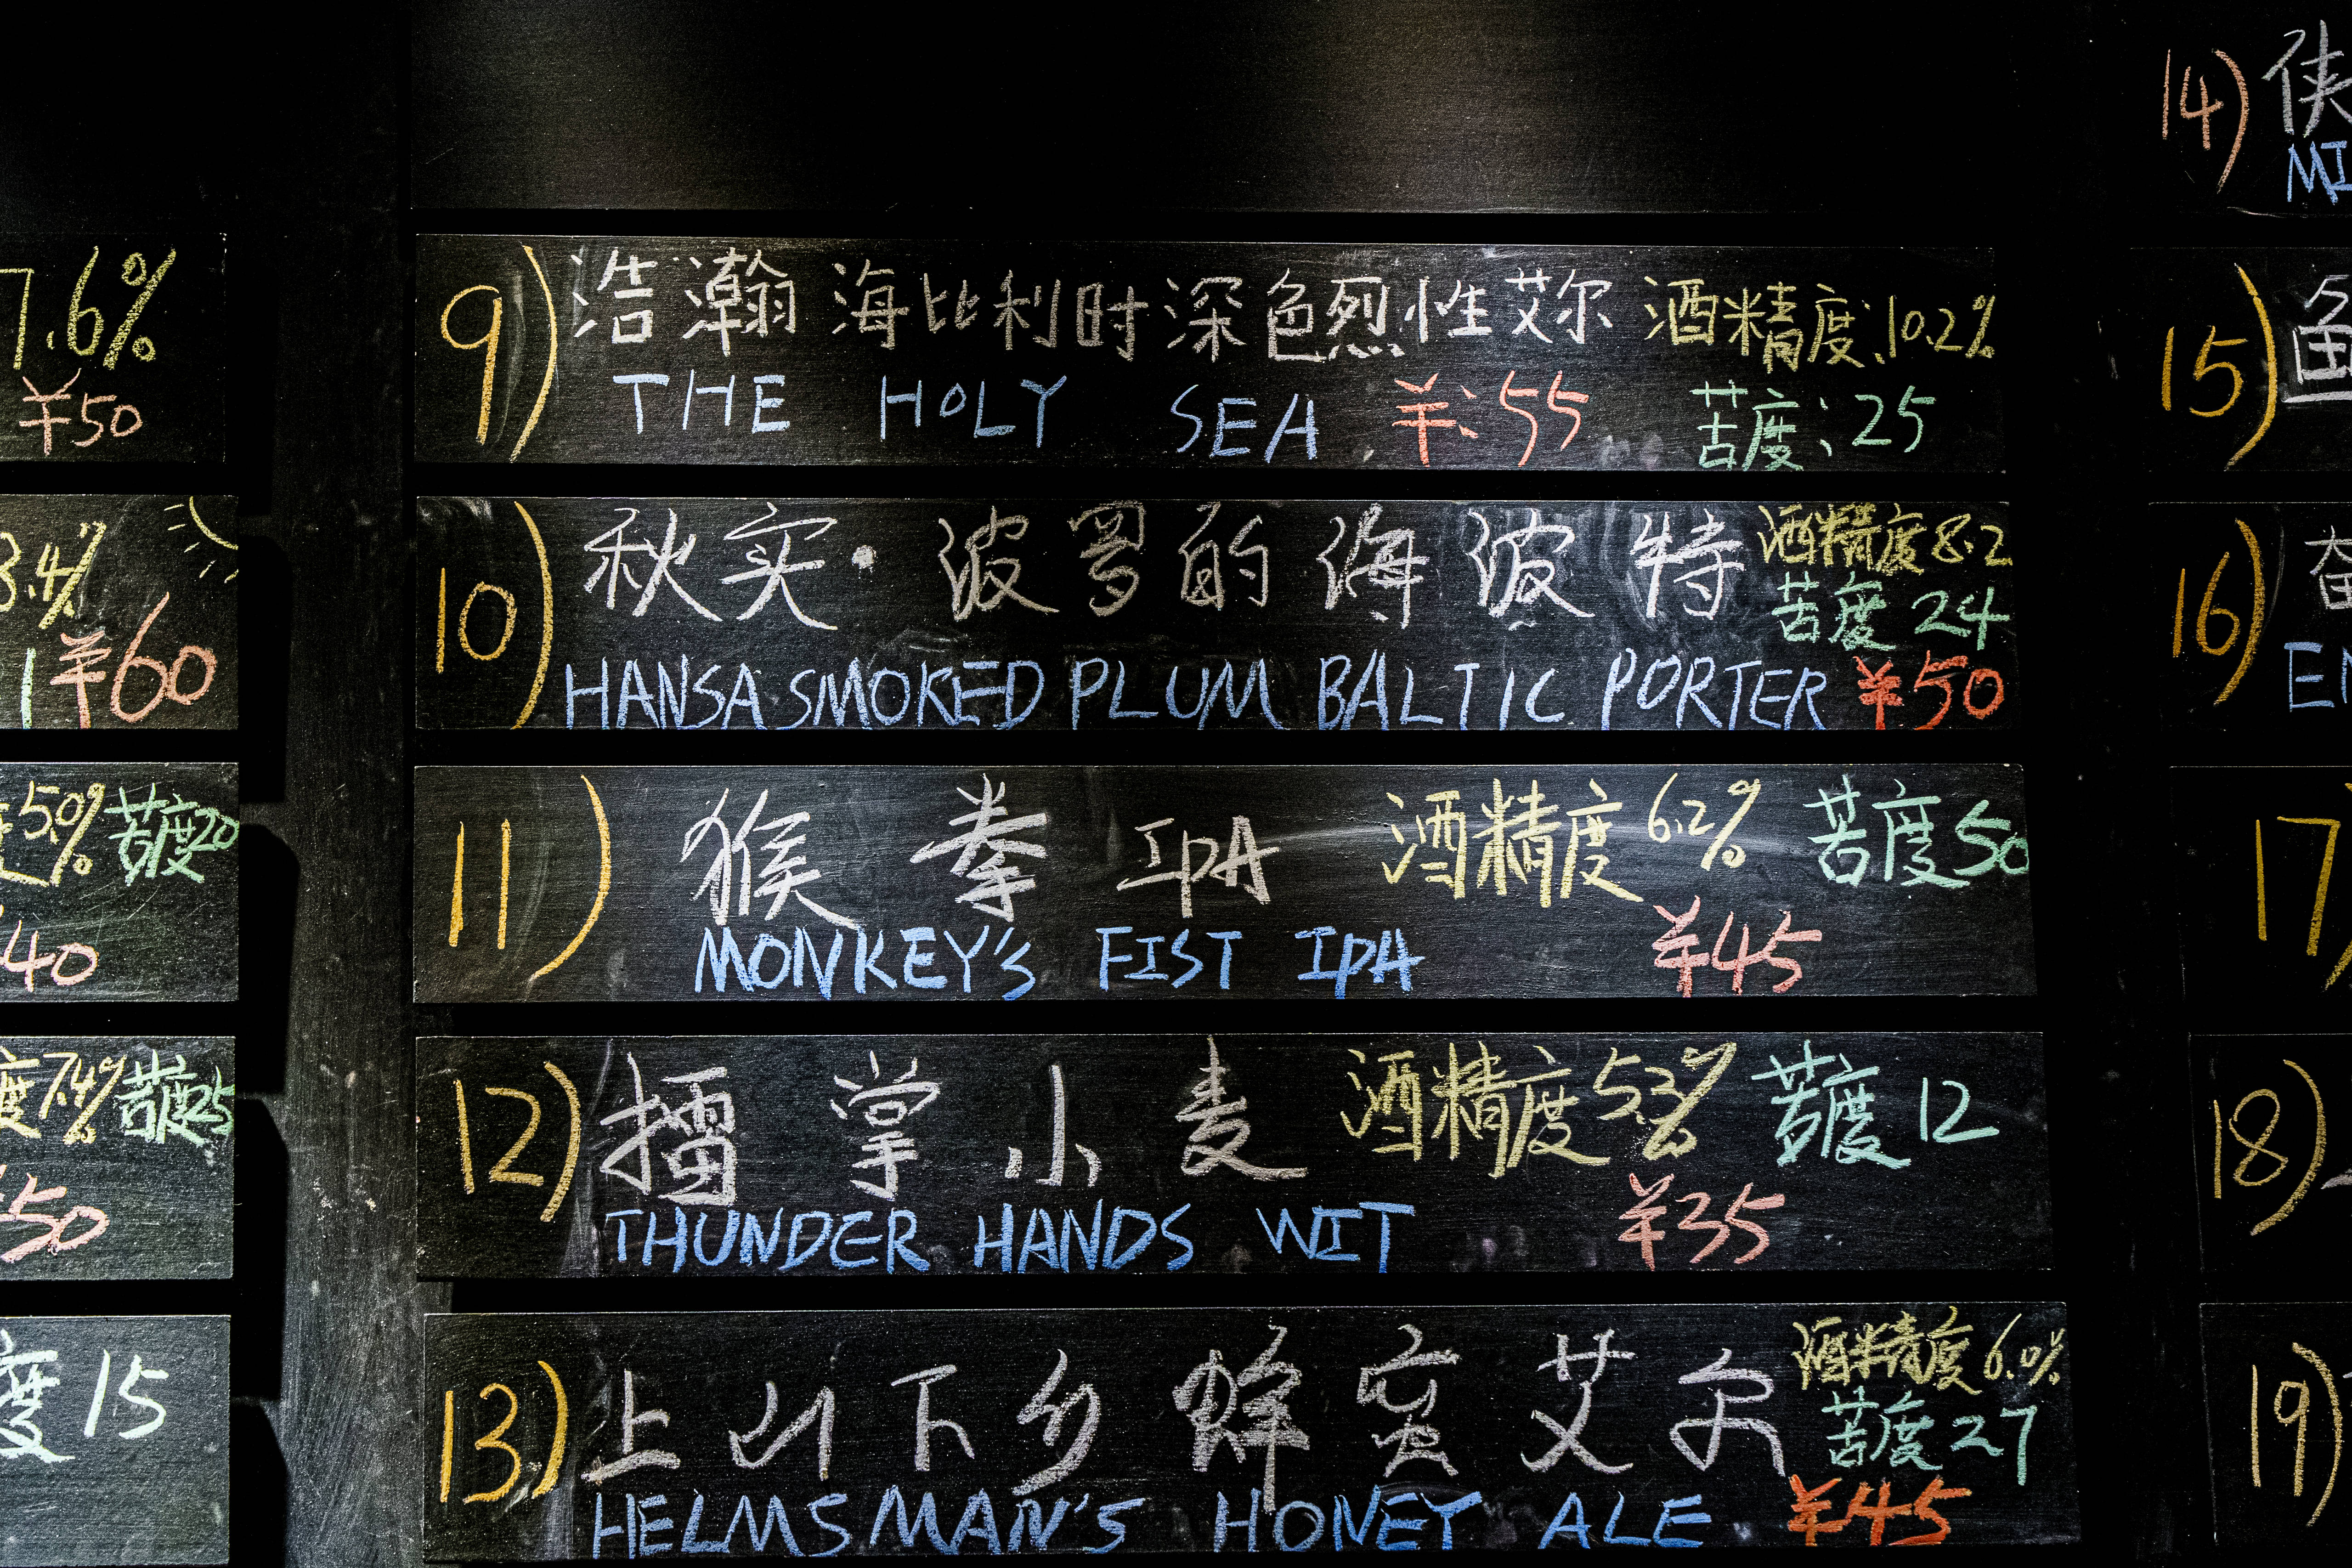 7.6%
¥50
3.4%
1 ¥60
5.0% 苦度20
40
度7.4% 苦度25
50
度 15
9) 浩瀚海比利时深色烈性艾尔 酒精度:10.2%
THE HOLY SEA ¥:55 苦度:25
10) 秋实·波罗的海波特 酒精度8.2
苦度 24
HANSA SMOKED PLUM BALTIC PORTER ¥50
11) 猴拳 IPA 酒精度6.2% 苦度50
MONKEY'S FIST IPA ¥45
12) 擂掌小麦 酒精度5.3% 苦度 12
THUNDER HANDS WIT ¥35
13) 上山下乡蜂蜜艾尔 酒精度6.0%
苦度 27
HELMSMAN'S HONEY ALE ¥45
14) 侠
MI
15)
16)
EN
17
18)
19)